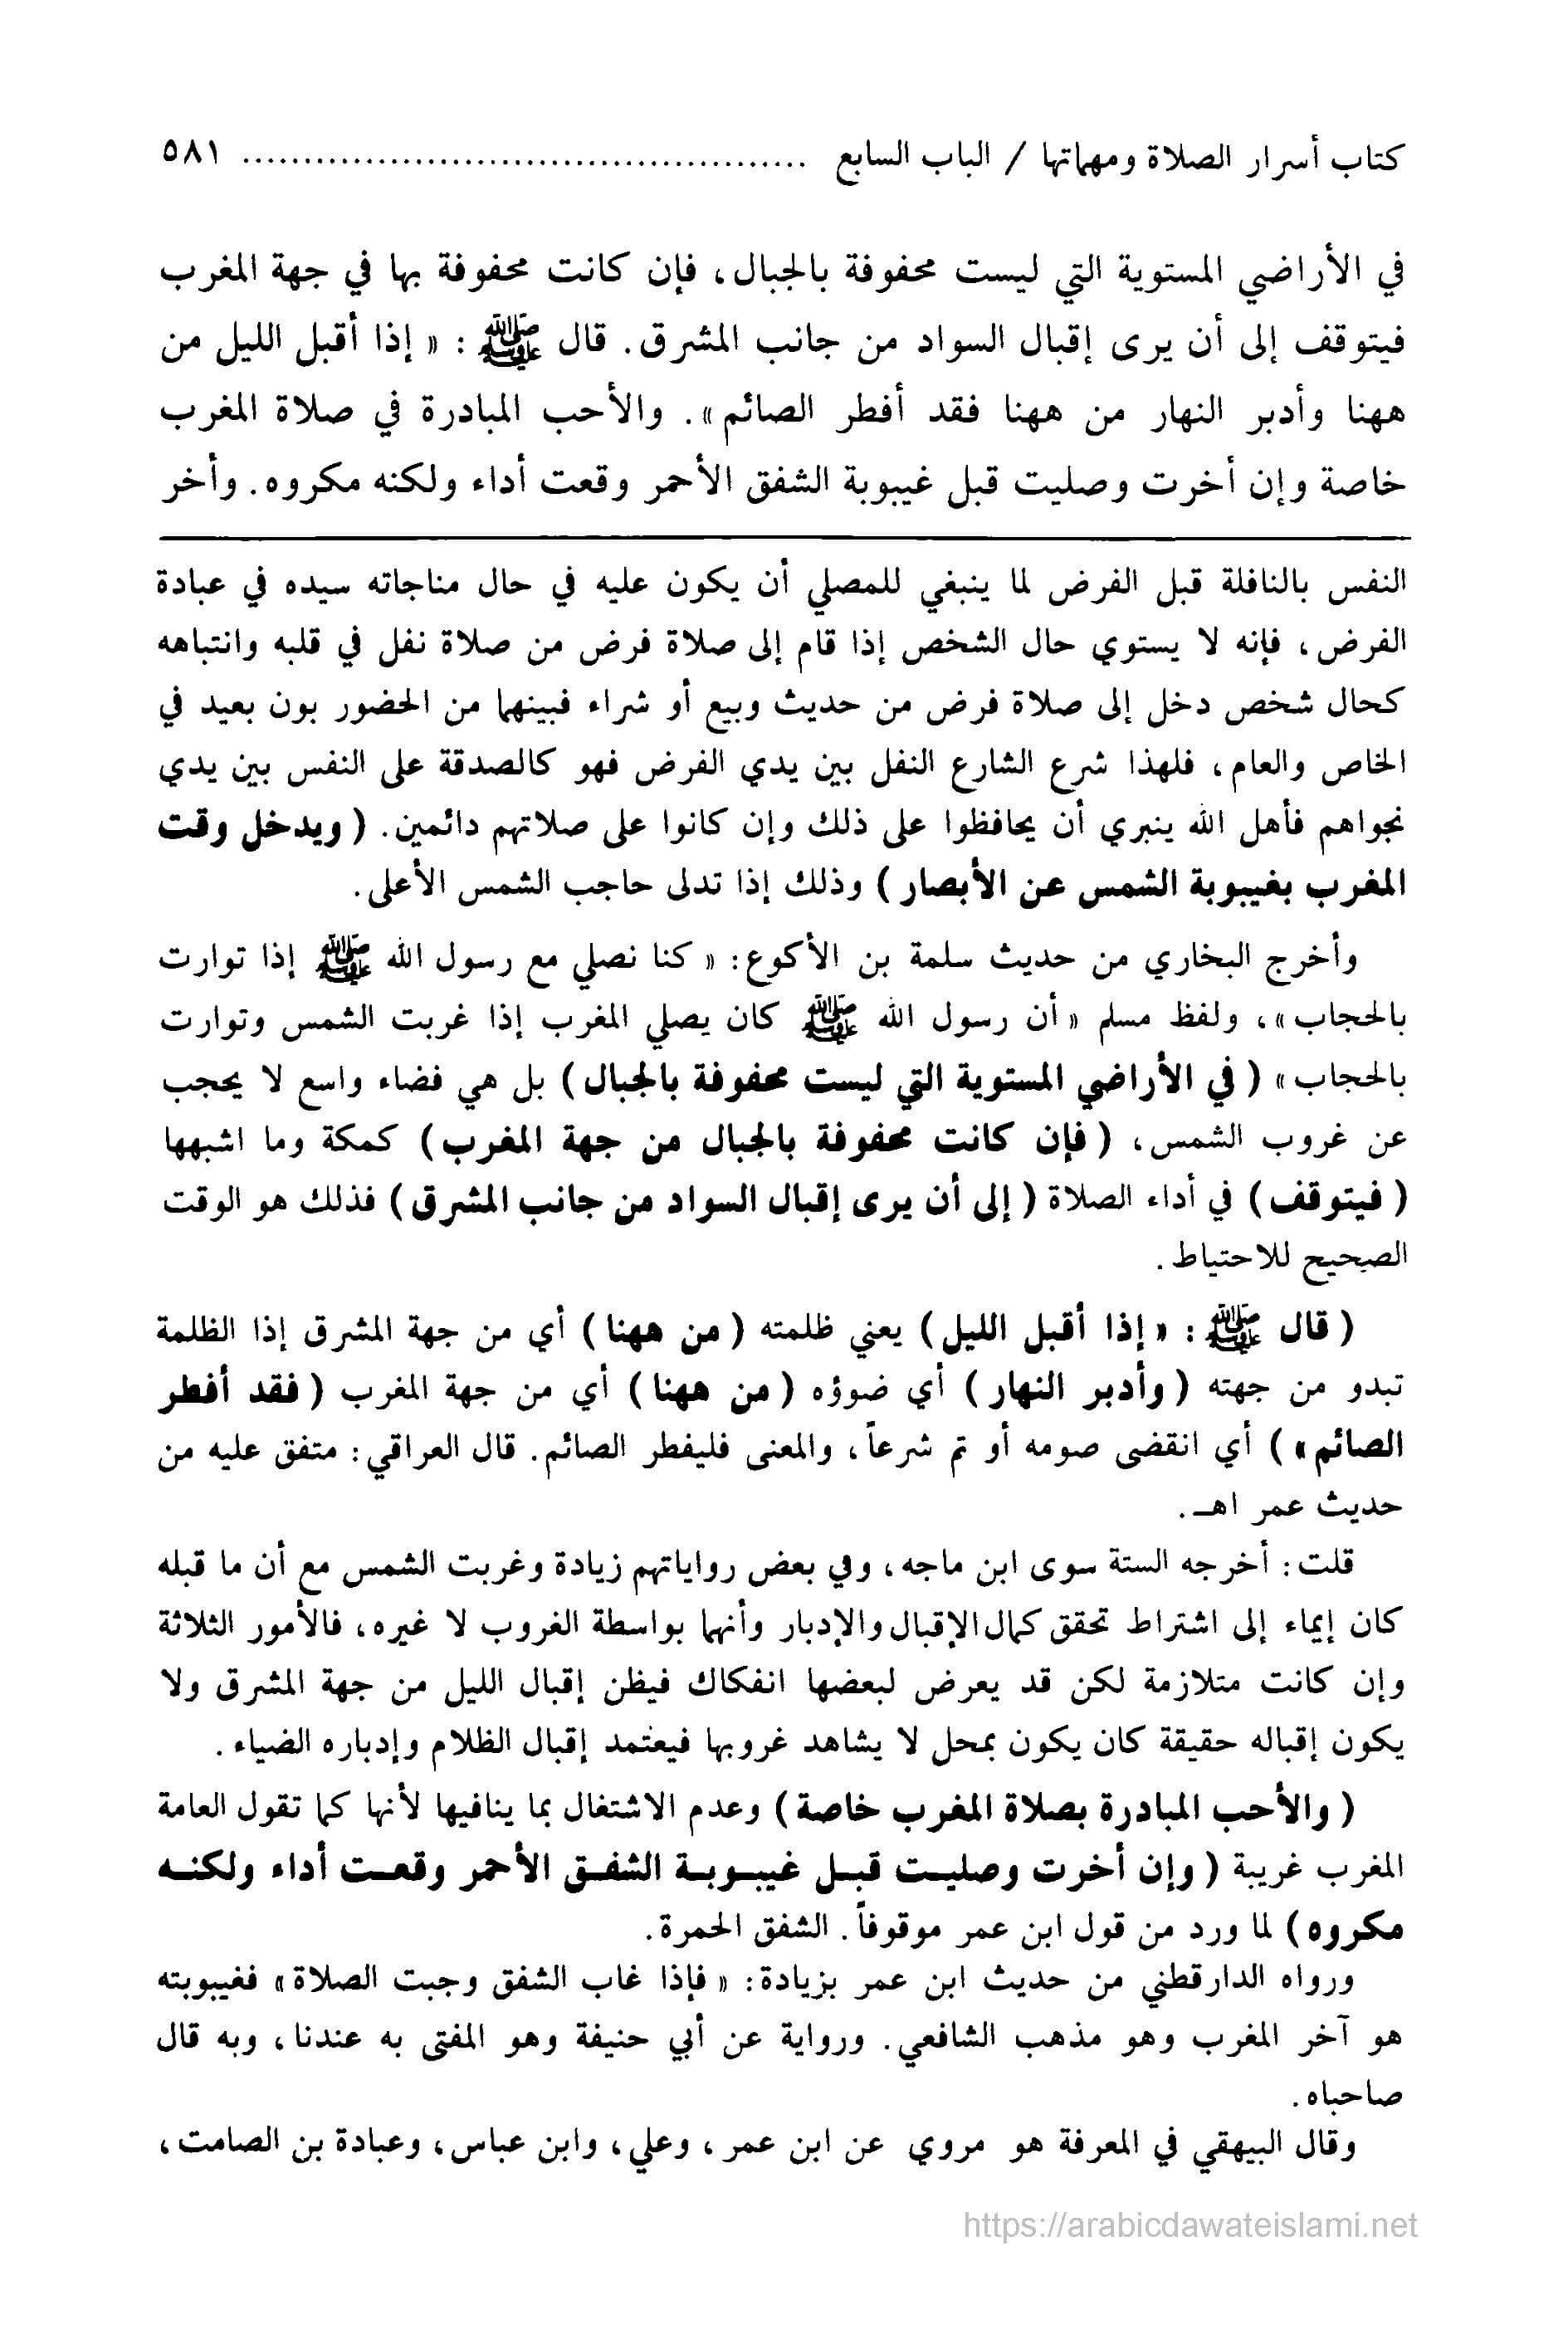 كتاب أسرار الصلاة ومهماتها / الباب السابع .............................................. ٥٨١
في الأراضي المستوية التي ليست محفوفة بالجبال، فإن كانت محفوفة بها في جهة المغرب
فيتوقف إلى أن يرى إقبال السواد من جانب المشرق. قال ﷺ : « إذا أقبل الليل من
ههنا وأدبر النهار من ههنا فقد أفطر الصائم ». والأحب المبادرة في صلاة المغرب
خاصة وإن أخرت وصليت قبل غيبوبة الشفق الأحمر وقعت أداء ولكنه مكروه. وأخر
النفس بالنافلة قبل الفرض لما ينبغي للمصلي أن يكون عليه في حال مناجاته سيده في عبادة
الفرض، فإنه لا يستوي حال الشخص إذا قام إلى صلاة فرض من صلاة نفل في قلبه وانتباهه
كحال شخص دخل إلى صلاة فرض من حديث وبيع أو شراء فبينهما من الحضور بون بعيد في
الخاص والعام، فلهذا شرع الشارع النفل بين يدي الفرض فهو كالصدقة على النفس بين يدي
نجواهم فأهل الله ينبري أن يحافظوا على ذلك وإن كانوا على صلاتهم دائمين. ( ويدخل وقت
المغرب بغيبوبة الشمس عن الأبصار ) وذلك إذا تدلى حاجب الشمس الأعلى.
وأخرج البخاري من حديث سلمة بن الأكوع: « كنا نصلي مع رسول الله ﷺ إذا توارت
بالحجاب »، ولفظ مسلم « أن رسول الله ﷺ كان يصلي المغرب إذا غربت الشمس وتوارت
بالحجاب » ( في الأراضي المستوية التي ليست محفوفة بالجبال ) بل هي فضاء واسع لا يحجب
عن غروب الشمس، ( فإن كانت محفوفة بالجبال من جهة المغرب ) كمكة وما اشبهها
( فيتوقف ) في أداء الصلاة ( إلى أن يرى إقبال السواد من جانب المشرق ) فذلك هو الوقت
الصحيح للاحتياط.
( قال ﷺ : « إذا أقبل الليل ) يعني ظلمته ( من ههنا ) أي من جهة المشرق إذا الظلمة
تبدو من جهته ( وأدبر النهار ) أي ضوؤه ( من ههنا ) أي من جهة المغرب ( فقد أفطر
الصائم » ) أي انقضى صومه أو تم شرعاً، والمعنى فليفطر الصائم. قال العراقي: متفق عليه من
حديث عمر اهـ.
قلت: أخرجه الستة سوى ابن ماجه، وفي بعض رواياتهم زيادة وغربت الشمس مع أن ما قبله
كان إيماء إلى اشتراط تحقق كمال الإقبال والإدبار وأنهما بواسطة الغروب لا غيره، فالأمور الثلاثة
وإن كانت متلازمة لكن قد يعرض لبعضها انفكاك فيظن إقبال الليل من جهة المشرق ولا
يكون إقباله حقيقة كان يكون بمحل لا يشاهد غروبها فيعتمد إقبال الظلام وإدباره الضياء.
( والأحب المبادرة بصلاة المغرب خاصة ) وعدم الاشتغال بما ينافيها لأنها كما تقول العامة
المغرب غريبة ( وإن أخرت وصليت قبل غيبوبة الشفق الأحمر وقعت أداء ولكنه
مكروه ) لما ورد من قول ابن عمر موقوفاً. الشفق الحمرة.
ورواه الدارقطني من حديث ابن عمر بزيادة: « فإذا غاب الشفق وجبت الصلاة » فغيبوبته
هو آخر المغرب وهو مذهب الشافعي. ورواية عن أبي حنيفة وهو المفتى به عندنا، وبه قال
صاحباه.
وقال البيهقي في المعرفة هو مروي عن ابن عمر، وعلي، وابن عباس، وعبادة بن الصامت،
https://arabicdawateislami.net